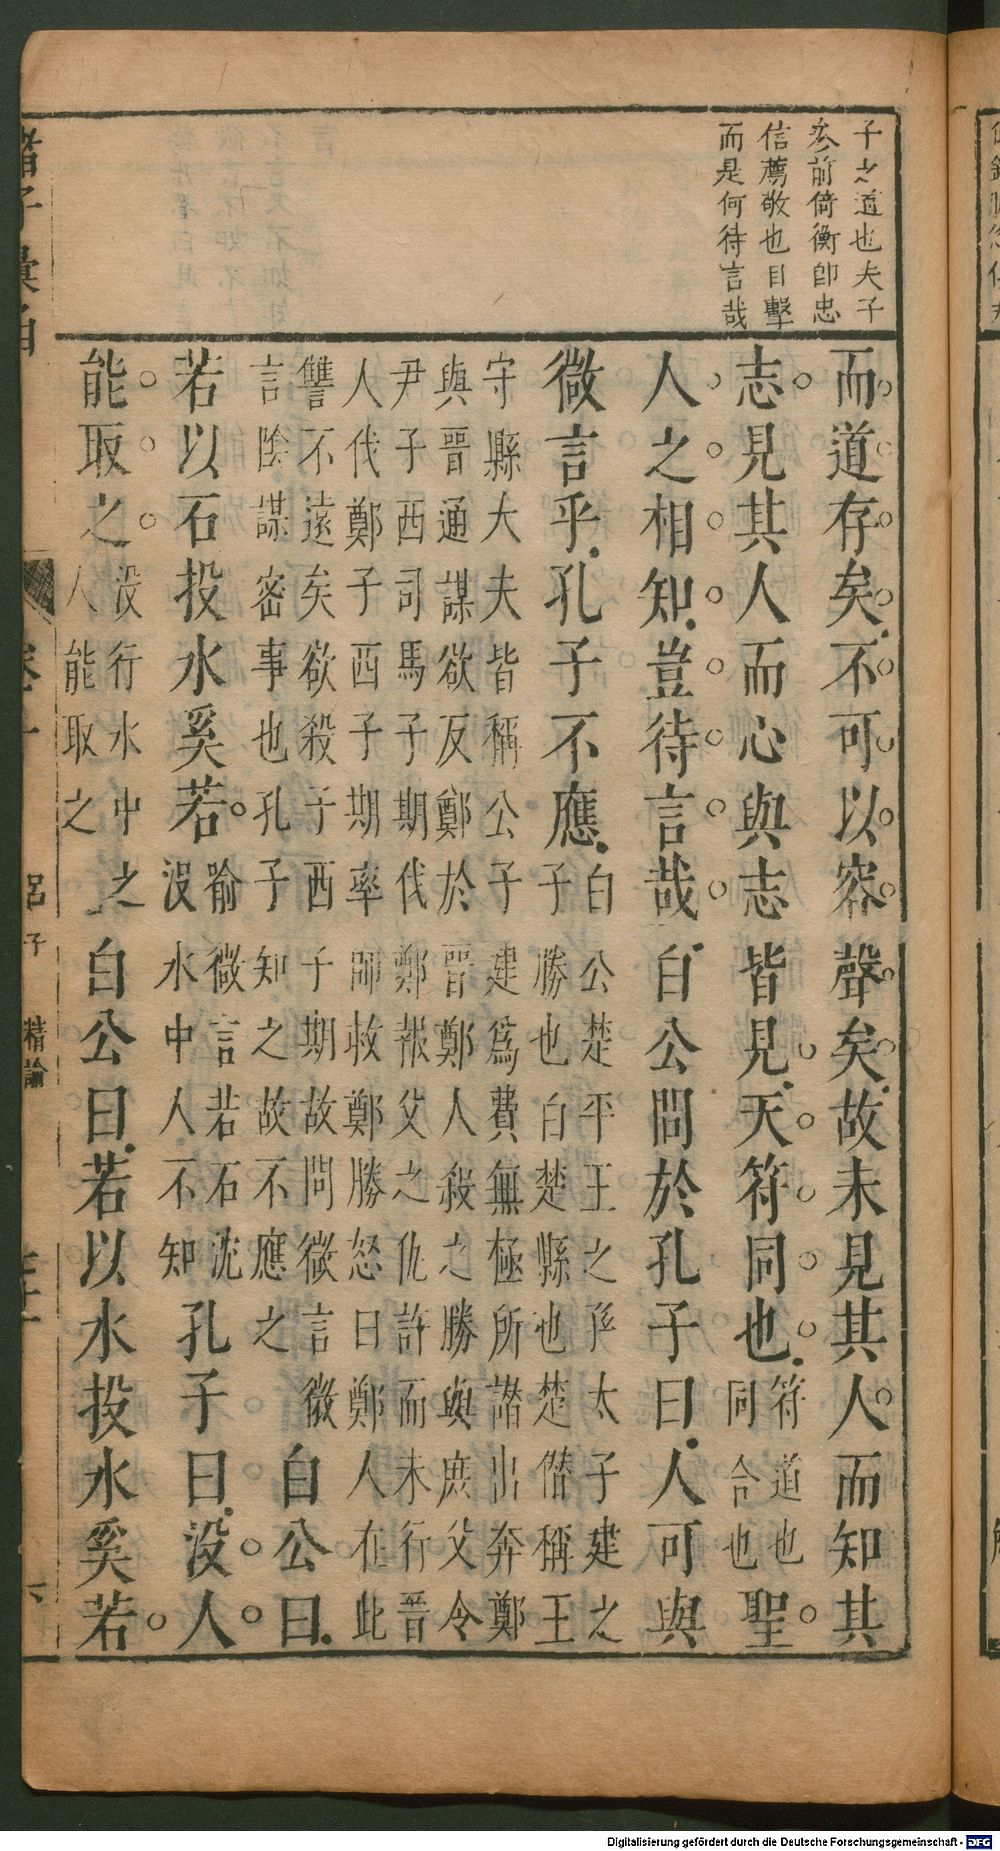 子之道也夫子
叅前倚衡即忠
信薦敬也目擊
而是何待言哉
而道存矣不可以容聲矣故未見其人而知其
志見其人而心與志皆見天符同也符道也同合也聖
人之相知豈待言哉白公問於孔子曰人可與
微言乎孔子不應白公楚平王之孫太子建之子勝也白楚縣也楚僭稱王
守縣大夫皆稱公子建爲費無極所譖出奔鄭
與晉通謀欲反鄭於晉鄭人殺之勝與庶父令
尹子西司馬子期伐鄭報父之仇許而未行晉
人伐鄭子西子期率師救鄭勝怒曰鄭人在此
讐不遠矣欲殺子西子期故問微言微
言陰謀密事也孔子知之故不應之白公曰
若以石投水奚若喻微言若石沈沒水中人不知孔子曰沒人
能取之沒行水中之人能取之白公曰若以水投水奚若
呂子 精諭
Digitalisierung gefördert durch die Deutsche Forschungsgemeinschaft - DFG